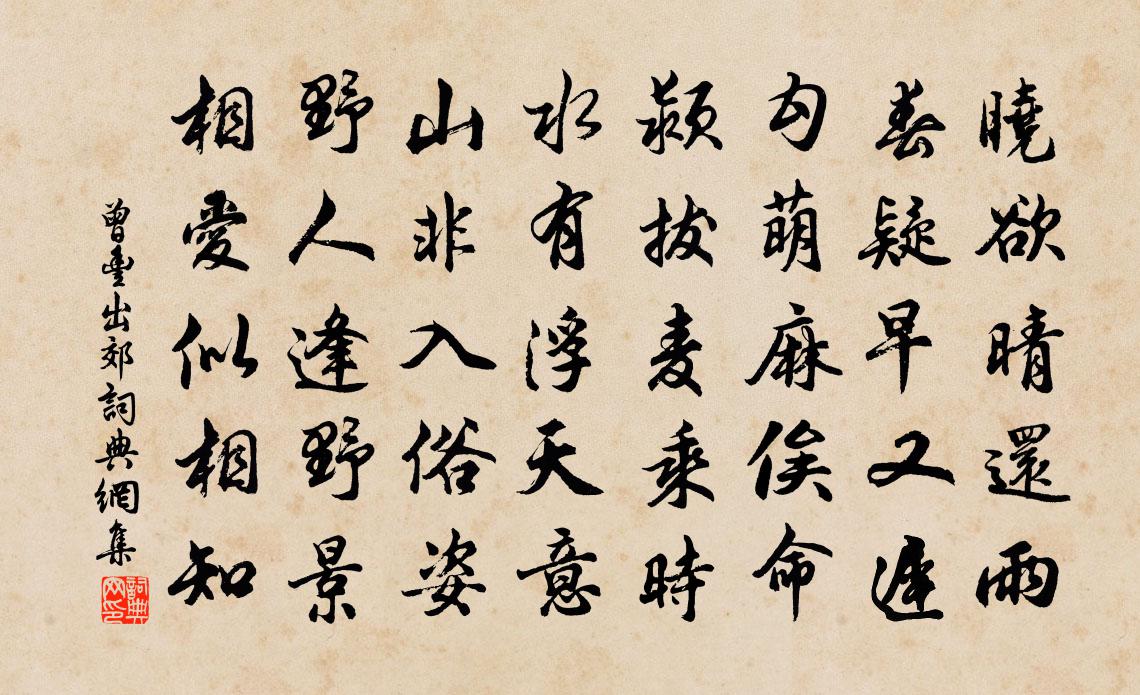 曉欲晴還雨
春疑早又遲
勾萌麻俟命
潁拔麦乘時
水有浮天意
山非入俗姿
野人逢野景
相愛似相知
曾豐出郊詞典網集
詞典